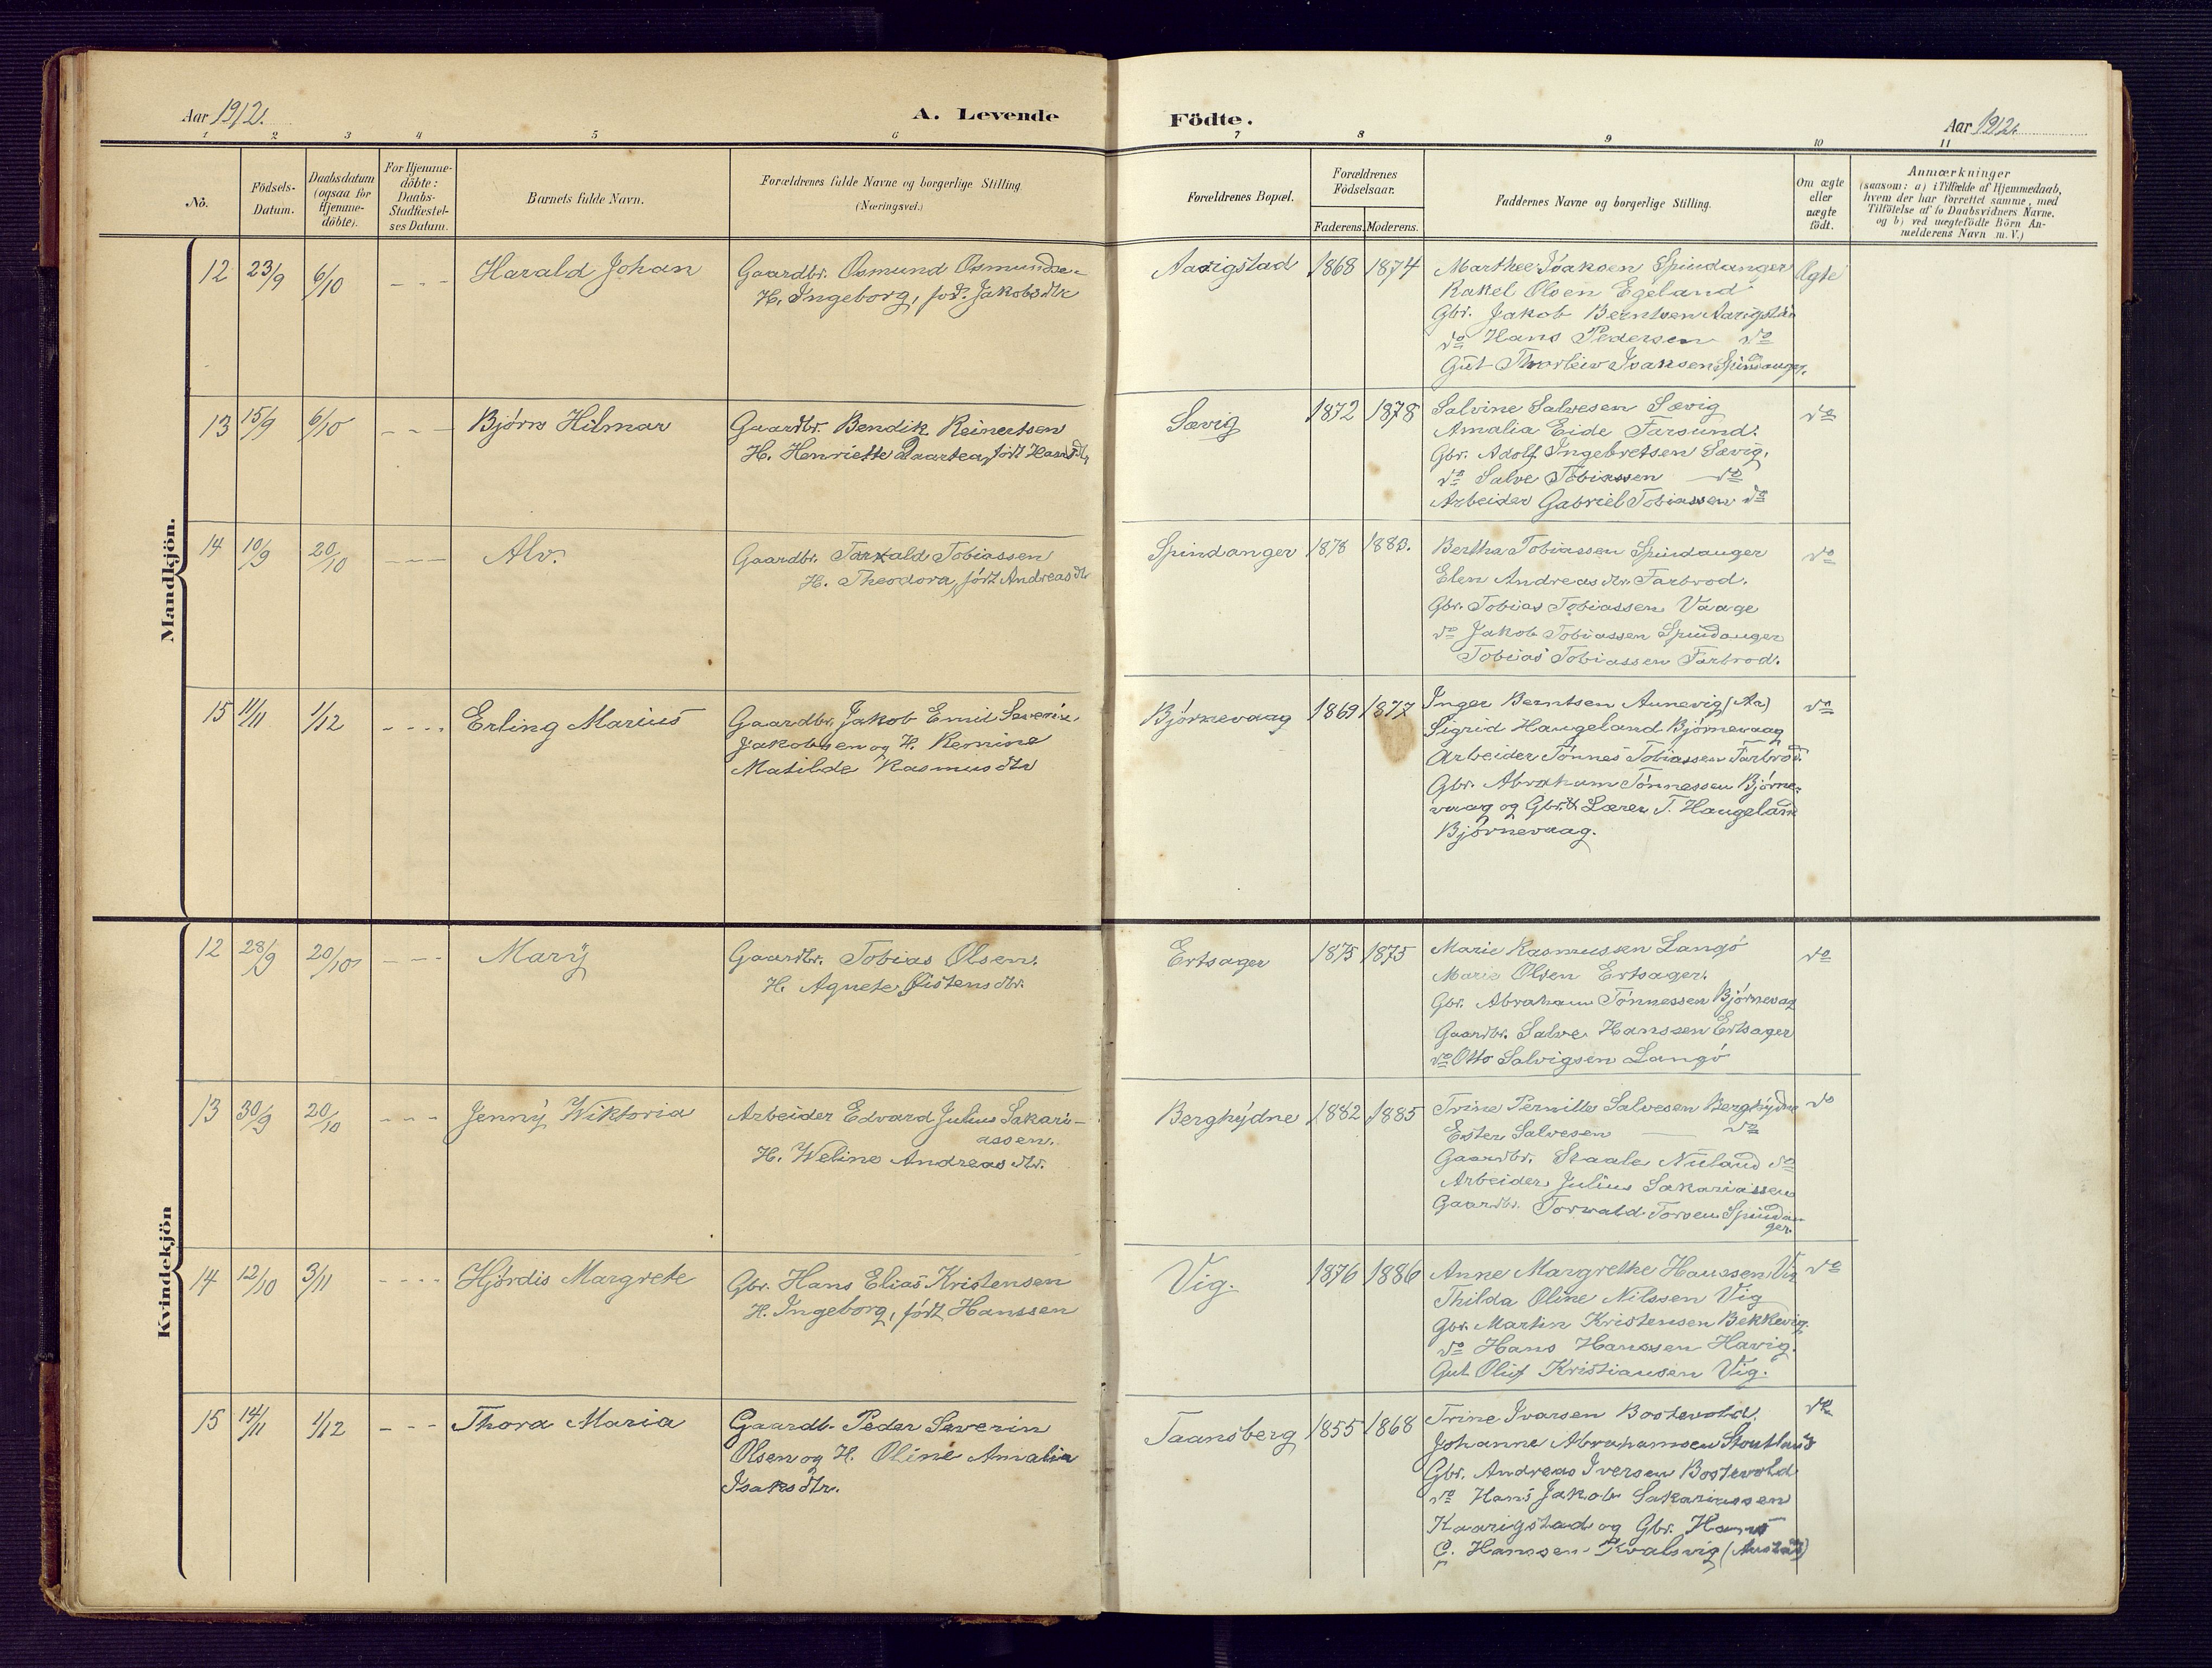 Aar 1912.
A. Levende
Födte.
Aar 1912.
1 2 3 4 5 6 7 8 9 10 11
No.
Födsels-Datum.
Daabsdatum (ogsaa for Hjemme-döbte).
For Hjemme-döbte: Daabs-Stadfæstel-ses Datum.
Barnets fulde Navn.
Forældrenes fulde Navne og borgerlige Stilling
(Næringsvei.)
Forældrenes Bopæl.
Forældrenes Födselsaar.
Faderens. Moderens.
Faddernes Navne og borgerlige Stilling.
Om ægte eller uægte födt.
Anmærkninger
(saasom: a) i Tilfælde af Hjemmedaab,
hvem der har forrettet samme, med
Tilföielse af to Daabsvidners Navne.
og b) ved uægtefödte Börn An-
melderens Navn m. V.)
Mandkjön.
12 23/9 6/10 - - - Harald Johan
Gaardbr. Osmund Osmundse-
H. Ingeborg, fød. Jakobsdtr
Aarigstad 1868 1874
Marthee Isaksen Spindanger
Rakel Olsen Egeland
Gbr. Jakob Berntsen Aarigstad
do Hans Pedersen do
Gut Thorleiv Isaksen Spindanger.
Ægte
13 15/9 6/10 - - - Bjørn Hilmar
Gaardbr. Bendik Reinertsen
H. Henriette Daartea, født Hansdtr
Sævig 1872 1878
Salvine Salvesen Sævig
Amalia Eide Farsund.
Gbr. Adolf Ingebretsen Sævig.
do Salve Tobiassen do
Arbeider Gabriel Tobiassen do
do
14 10/9 20/10 - - - Alv.
Gaardbr. Torvald Tobiassen
H. Theodora, født Andreasdtr
Spindanger 1878 1883.
Bertha Tobiassen Spindanger
Elen Andreasdtr. Farbrod.
Gbr. Tobias Tobiassen Vaage
do Jakob Tobiassen Spindanger
Tobias Tobiassen Farbrod.
do
15 11/11 1/12 - - - Erling Marius
Gaardbr. Jakob Emil Severin
Jakobsen og H. Remine
Matilde Rasmusdtr
Bjørnevaag 1869 1877
Inger Berntsen Aunevig (Au)
Sigrid Haugeland Bjørnevaag
Arbeider Tønnes Tobiassen Farbrod.
Gbr. Abraham Tønnessen Bjørne-
vaag og Gbr. & Lærer T. Haugeland
Bjørnevaag.
do
Kvindekjön
12 28/9 20/10 - - - Marÿ
Gaardbr. Tobias Olsen.
H. Agnete Øistensdtr.
Ertsager 1875 1875
Marie Rasmussen Langø
Marie Olsen Ertsager.
Gbr. Abraham Tønnessen Bjørnevag
Gaardbr. Salve Hanssen Ertsager
do Otto Salvigsen Langø
do
13 30/9 20/10 - - - Jennÿ Wiktoria
Arbeider Edvard Julius Sakari-
assen.
H. Weline Andreasdtr.
Berghÿdne 1882 1885
Trine Pernille Salvesen Berghÿdne
Ester Salvesen do
Gaardbr. Staale Nuland do
Arbeider Julius Sakariassen
Gaardbr. Torwald Torsen Spindan-
ger.
do
14 12/10 3/11 - - - - Hjørdis Margrete
Gbr. Hans Elias Kristensen
H. Ingeborg, født Hanssen
Vig. 1876 1886
Anne Margrethe Hanssen Vig
Thilda Oline Nilssen Vig
Gbr. Martin Kristensen Bekkevig.
do Hans Hanssen Havig.
Gut Oluf Kristiansen Vig.
do
15 14/11 1/12 - - - Thora Maria
Gaardb. Peder Severin
Olsen og H. Oline Amalia
Isaksdtr.
Taansberg 1855 1868
Trine Ivarsen Bostevold.
Johanne Abrahamsen Stoutland
Gbr. Andreas Iversen Bostevold
do Hans Jakob Sakariassen
Kaarigstad og Gbr. Hans
C. Hanssen Kvalsvig (Austad)
do